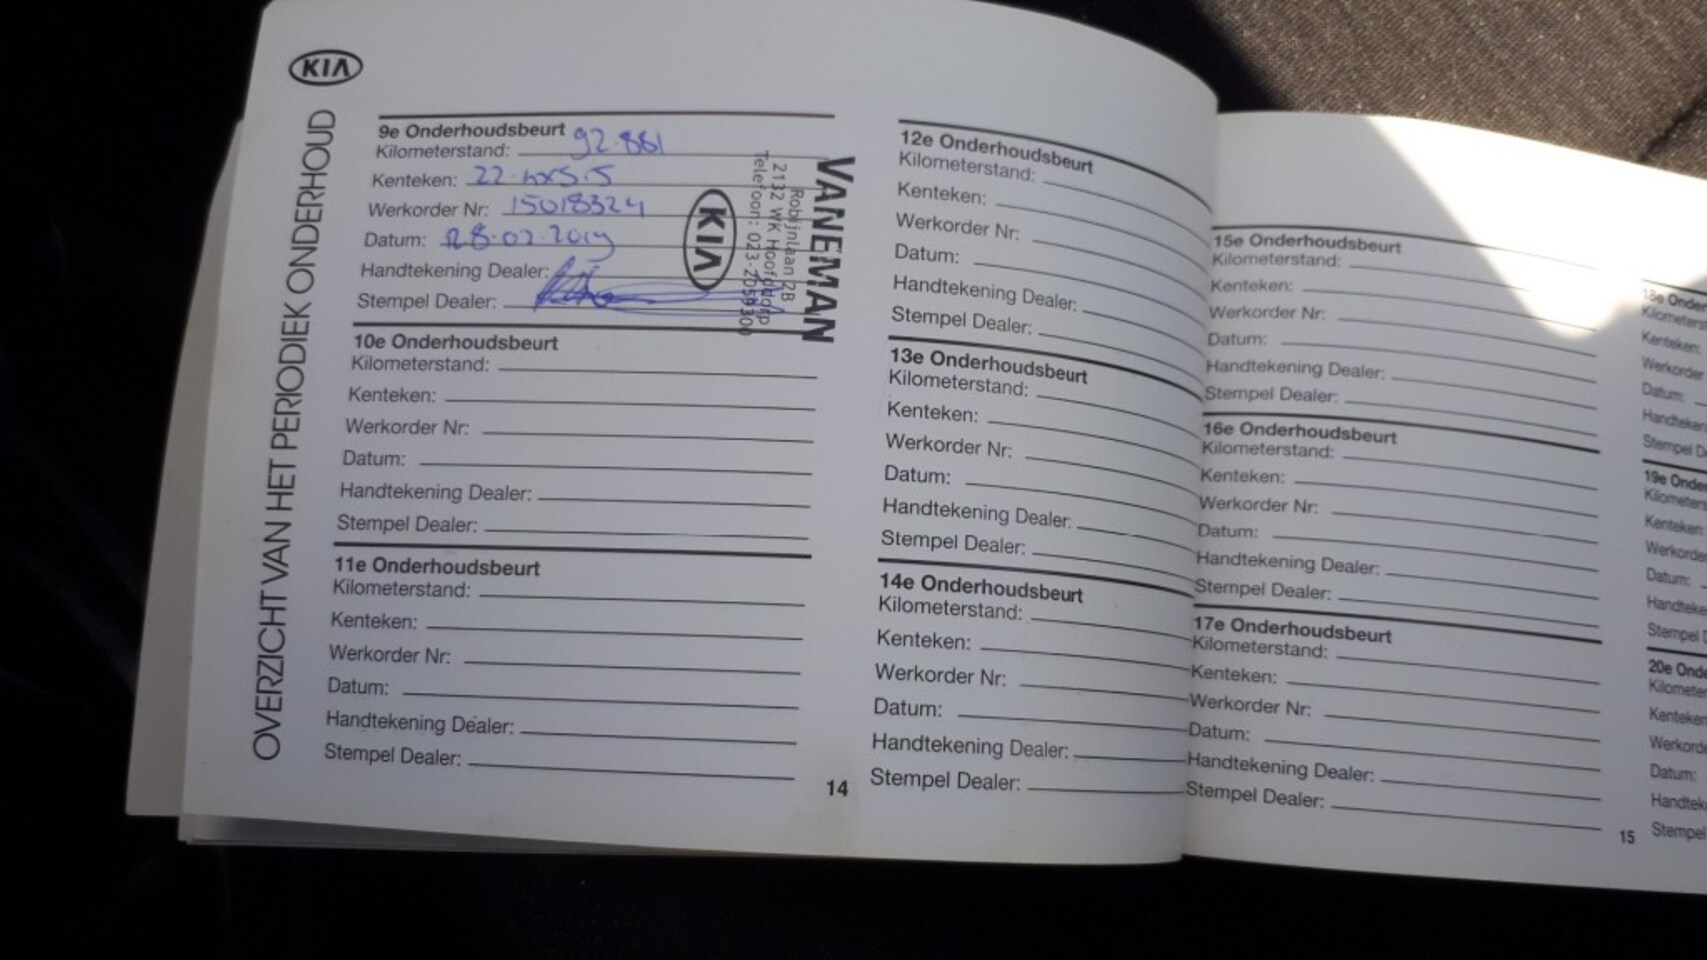 KIA
OVERZICHT VAN HET PERIODIEK ONDERHOUD
9e Onderhoudsbeurt
Kilometerstand: 92.881
Kenteken: 22
Werkorder Nr: 15018324
Datum: 28-02-2019
Handtekening Dealer:
Stempel Dealer:
VANEMAN
Robijnlaan 2B
2132 WK Hoofddorp
Telefoon: 023-2059300
KIA
10e Onderhoudsbeurt
Kilometerstand:
Kenteken:
Werkorder Nr:
Datum:
Handtekening Dealer:
Stempel Dealer:
11e Onderhoudsbeurt
Kilometerstand:
Kenteken:
Werkorder Nr:
Datum:
Handtekening Dealer:
Stempel Dealer:
14
12e Onderhoudsbeurt
Kilometerstand:
Kenteken:
Werkorder Nr:
Datum:
Handtekening Dealer:
Stempel Dealer:
13e Onderhoudsbeurt
Kilometerstand:
Kenteken:
Werkorder Nr:
Datum:
Handtekening Dealer:
Stempel Dealer:
14e Onderhoudsbeurt
Kilometerstand:
Kenteken:
Werkorder Nr:
Datum:
Handtekening Dealer:
Stempel Dealer:
15e Onderhoudsbeurt
Kilometerstand:
Kenteken:
Werkorder Nr:
Datum:
Handtekening Dealer:
Stempel Dealer:
16e Onderhoudsbeurt
Kilometerstand:
Kenteken:
Werkorder Nr:
Datum:
Handtekening Dealer:
Stempel Dealer:
17e Onderhoudsbeurt
Kilometerstand:
Kenteken:
Werkorder Nr:
Datum:
Handtekening Dealer:
Stempel Dealer:
15
18e Onde
Kilometers
Kenteken:
Werkorder
Datum:
Handteken
Stempel D
19e Onder
Kilometers
Kenteken:
Werkorde
Datum:
Handteke
Stempel D
20e Onde
Kilometer
Kenteken
Werkorde
Datum:
Handtek
Stempel